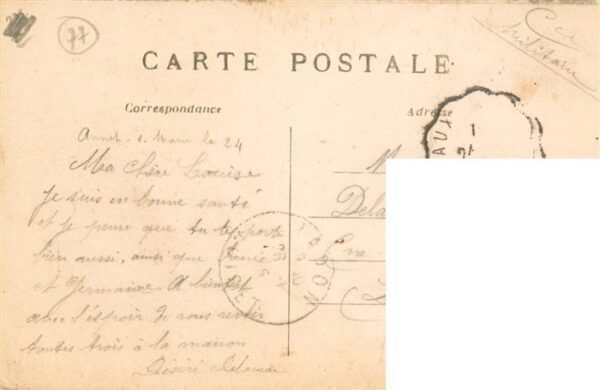 77
Cce
Militaire
CARTE POSTALE
Correspondance
Adresse
Annet-s-Marn le 24
Ma Chère Louise
Je suis en bonne santé
et je pense que tu te portes
bien aussi, ainsi que
et Germaine A bientôt
avec l'espoir de vous revoir
toutes trois à la maison
Désiré
M
Dela